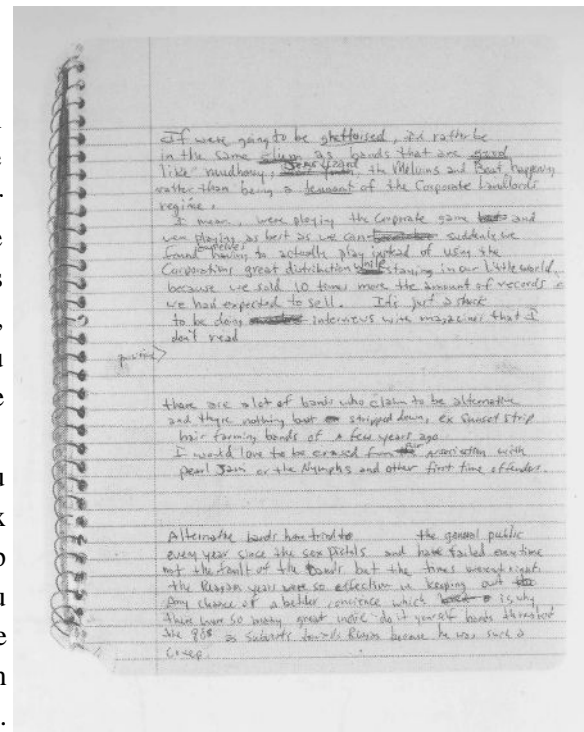 If were going to be ghettoised, I'd rather be
in the same slum as bands that are good
like mudhoney, Jesus Lizard, the Melvins and Beat happening
rather than being a tennant of the Corporate Landlords
regime.
I mean, were playing the Corporate game and
were playing as best as we can suddenly we
found ourselves having to actually play instead of using the
Corporations great distribution while staying in our little world.
because we sold 10 times more the amount of records
we had expected to sell. It's just a shock
to be doing interviews with magazines that I
don't read
there are alot of bands who claim to be alternative
and theyre nothing but stripped down, ex sunset strip
hair farming bands of a few years ago
I would love to be erased from our association with
pearl Jam or the Nymphs and other first time offenders.
Alternative bands have tried to the general public
every year since the sex pistols and have failed everytime
not the fault of the bands but the times werent right.
the Reagan years were so effective in keeping out
any chance of a better concience which is why
there were so many great indie do it yourself bands throughout
the 80s as towards Reagan because he was such a
creep.